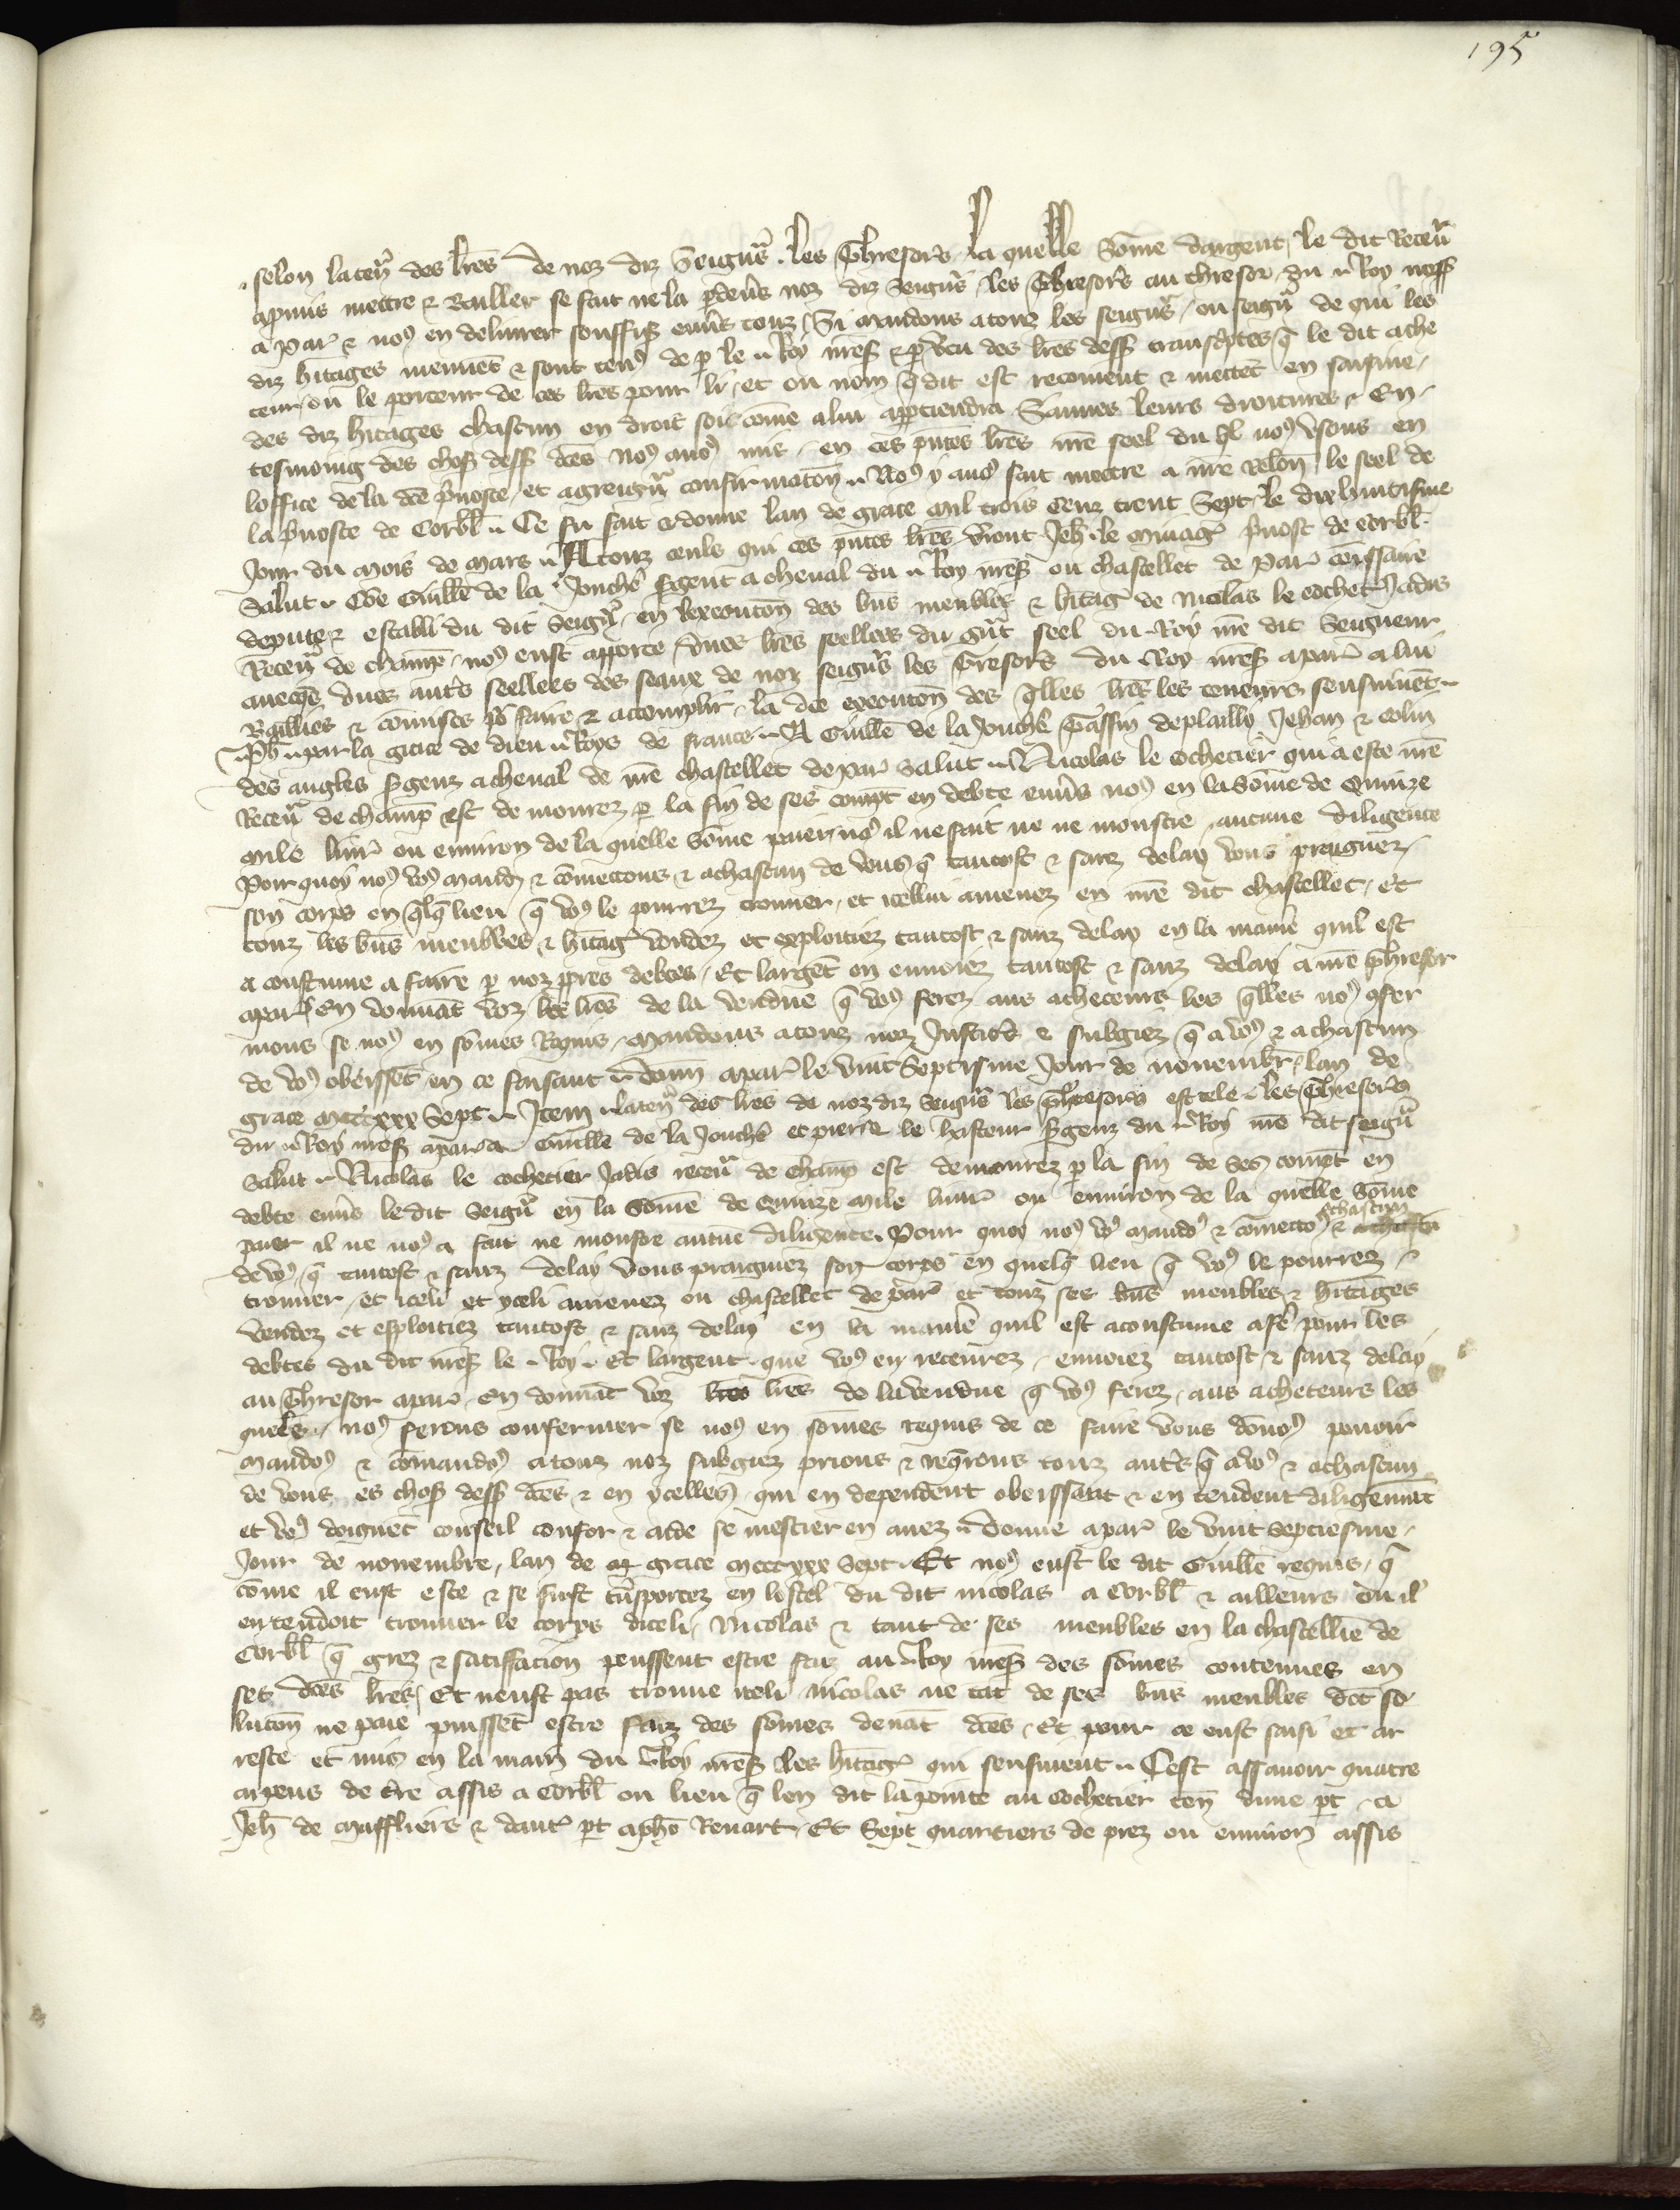 195
selon la ten᷑ des lr̃es de noz diz Seigñrs . les Thresors . la quelle Sõme dargent , le dit Receũ
a pmis mettre & Bailler se fait ne la p̃ deũs noz diz Seigñrs les Thresors au thresor du .. Roy noss̃
a Par᷑ & noꝰ en deliurer souffis̃ enũs touz , Si mandons a touz les seigñrs , ou seigñ de qui les
diz h̃itages meuuẽt & sont tenꝰ de ꝑ le .. Roy nr̃es̃ & ꝑ Vtu des lr̃es dess̃ transc̃ptes q̃ le dit ache
teur , ou le porteur de ces lr̃es pour li , et ou nom q̃ dit est recoiuent & mettẽt en saisine ,
des diz h̃itages chascun en droit soi cõme a lui apptiendra Sauues leurs droitures , En ,
tesmoing des chos̃ dess̃ dc̃es Noꝰ auõs mis , en ces p̃ntes lr̃es nr̃e seel du q̃l noꝰ vsons en
loffice de la dc̃e p̃uoste , et a greigñ confirmatõn .. Noꝰ y auõs fait mettre a nr̃e relõn le seel de
la p̃uoste de Corbl̃ .. Ce fu fait & donne lan de grace mil trois Cenz trent Sept , le dix huitisme
Jour du mois de mars .. A touz ceuls qui ces p̃ntes lr̃es ṽront Jeh̃ . le mirag᷑ p̃uost de corbl̃ .
Salut .. Cõe Guill̃e de la Jonch᷑e s̃gent a cheual du .. Roy nr̃es̃ ou chastellet de Par᷑ cõissaire
depute & establi du dit Seigñ , en lexecutõn des bñs meubles & h̃itag᷑ de Nicolas le cochet Jadis
Receũ de champ̃ , noꝰ eust apporte Vnes lr̃es seellees du gñt seel du .. Roy nr̃e dit Seigneur
auecq̃s vnes autr̃s seellees des seaux de noz seigñrs les Tresors du .. Roy nr̃es̃ a par᷑ a lui
Baillies & cõmises põ faire & accomplir , la dc̃e executõn des q̃lles lr̃es les teneurs sensuiuẽt ..
Ph̃ .. par la grace de dieu .. Roys de france .. A Guill̃e de la Jonch᷑e Tassin deplailli Jehan & Colin
des angles s̃genz a cheual de nr̃e chastellet de par᷑ salut .. Nicolas le cochetier qui a este nr̃e
Receũ de champ̃ est demourez ꝑ la fin de ses compt̃ en debte enũs noꝰ en la Sõme de Quinze
mile liur᷑ ou enuiron de la quelle Sõme paier noꝰ il ne fait ne ne monstre aucune diligence
Pour quoy noꝰ voꝰ mandõs & cõmettons & a chascun de vous q̃ tantost & sanz delay vous praignez ,
son corps en q̃lq̃ lieu q̃ voꝰ le pourrez trouuer , et icellui amenez en nr̃e dit chastellet , Et
touz les bñs meubles & h̃itag᷑ vendez et exploitiez tantost & sanz delay en la manie᷑ quil est
a coustume a faire ꝑ noz ppres debtes , Et largẽt en enuoiez tantost & sanz delay a nr̃e Thresor
a par᷑ En donnãt voz lr̃es de la vendue q̃ voꝰ ferez aus acheteurs les q̃lles noꝰ ꝯfer
mons se noꝰ en sõmes Requis , Mandons a touz noz Justicrs̃ & subgiez q̃ a voꝰ & a chascun
de voꝰ obeissẽt en ce faisant .. donn a par᷑ le vint Septisme Jour de nouemb᷑r , lan de
grace mcccxxx Sept .. Item .. la ten᷑ des lr̃es de noz diz Seigñrs les Thresors est tele .. les Thresors
du .. Roy nr̃es̃ a par᷑ a Guill̃e de la Jonch᷑e et pierre le hasteur s̃genz du .. Roy nr̃e dit seigñ
salut .. Nicolas le cochetier Jadis receũ de champ̃ est demourez ꝑ la fin de ses compt̃ en
debte enũs le dit Seigñ en la Sõme de Quinze mile liur᷑ ou enuiron de la quelle Sõme
paier il ne noꝰ a fait ne monstre aucũe diligence . Pour quoy noꝰ voꝰ mandõs & cõmettõs & achascun
de voꝰ q̃ tantost & sanz delay vous praigniez son corps en quelq̃ lieu q̃ voꝰ le pourrez ,
trouuer , et iceli et yceli amenez ou chastellet de par᷑ et touz ses bñs meubles & h̃itages
vendez et esploitiez tantost & sanz delay en la manie᷑ quil est acoustume a fe᷑ pour les
debtes du dit nr̃es̃ le .. Roy .. Et largent que voꝰ en receurez , enuoiez tantost & sanz delay
au Thresor a par᷑ En donnãt voz lr̃es de la vendue q̃ voꝰ ferez , aus acheteurs les
quels̃ , noꝰ ferons confermer se noꝰ en sõmes requis de ce faire vous dõnoꝰ pouoir
mandoꝰ & cõmandoꝰ a touz noz subgiez prions & req̃rons touz autr̃s q̃ a voꝰ & a chascun
de vous es chos̃ dess̃ dc̃es & en ycelles qui en dependent obeissant & en tendent diligẽmt̃
et voꝰ doignẽt conseil confor & aide se mestier en auez .. Donne a par᷑ le vint septiesme ,
Jour de nouembre , lan de grace mcccxxx Sept . Et noꝰ eust le dit Guill̃e requis , q̃
cõme il eust este & se feust tñsportez en lostel du dit nicolas a Corbl̃ & ailleurs ou il
entendoit trouuer le corps diceli , Nicolas & tant de ses meubles en la chastellie᷑ de
Corbl̃ q̃ grez & satisfacion peussent estre faiz au .. Roy nr̃es̃ des sõmes contenues en
ses dc̃es lr̃es , Et neust pas trouue iceli Nicolas ne tãt de ses bñs meubles dõt so
lutõn ne paie puissẽt estre faiz des sõmes deuãt dc̃es , Et pour ce eust saisi et ar
reste et mis en la main du .. Roy nr̃es̃ les h̃itag᷑ qui sensuiuent .. Cest assauoir quatre
arpens de tr̃e assis a Corbl̃ ou lieu q̃ len dit la pointe au cochetier ten᷑ dune pt̃ , a
Jeh̃ de maffliers & daut᷑ pt̃ a ph̃e Renart , Et Sept quartiers de prez ou enuiron assis